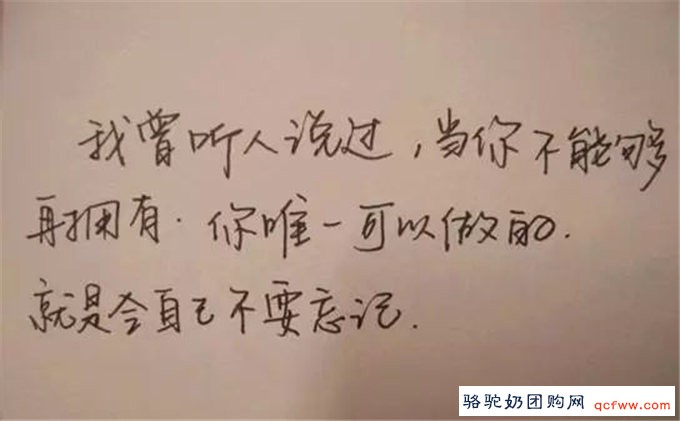 我曾听人说过，当你不能够
再拥有．你唯一可以做的．
就是令自己不要忘记．
骆驼奶团购网 qcfww.com